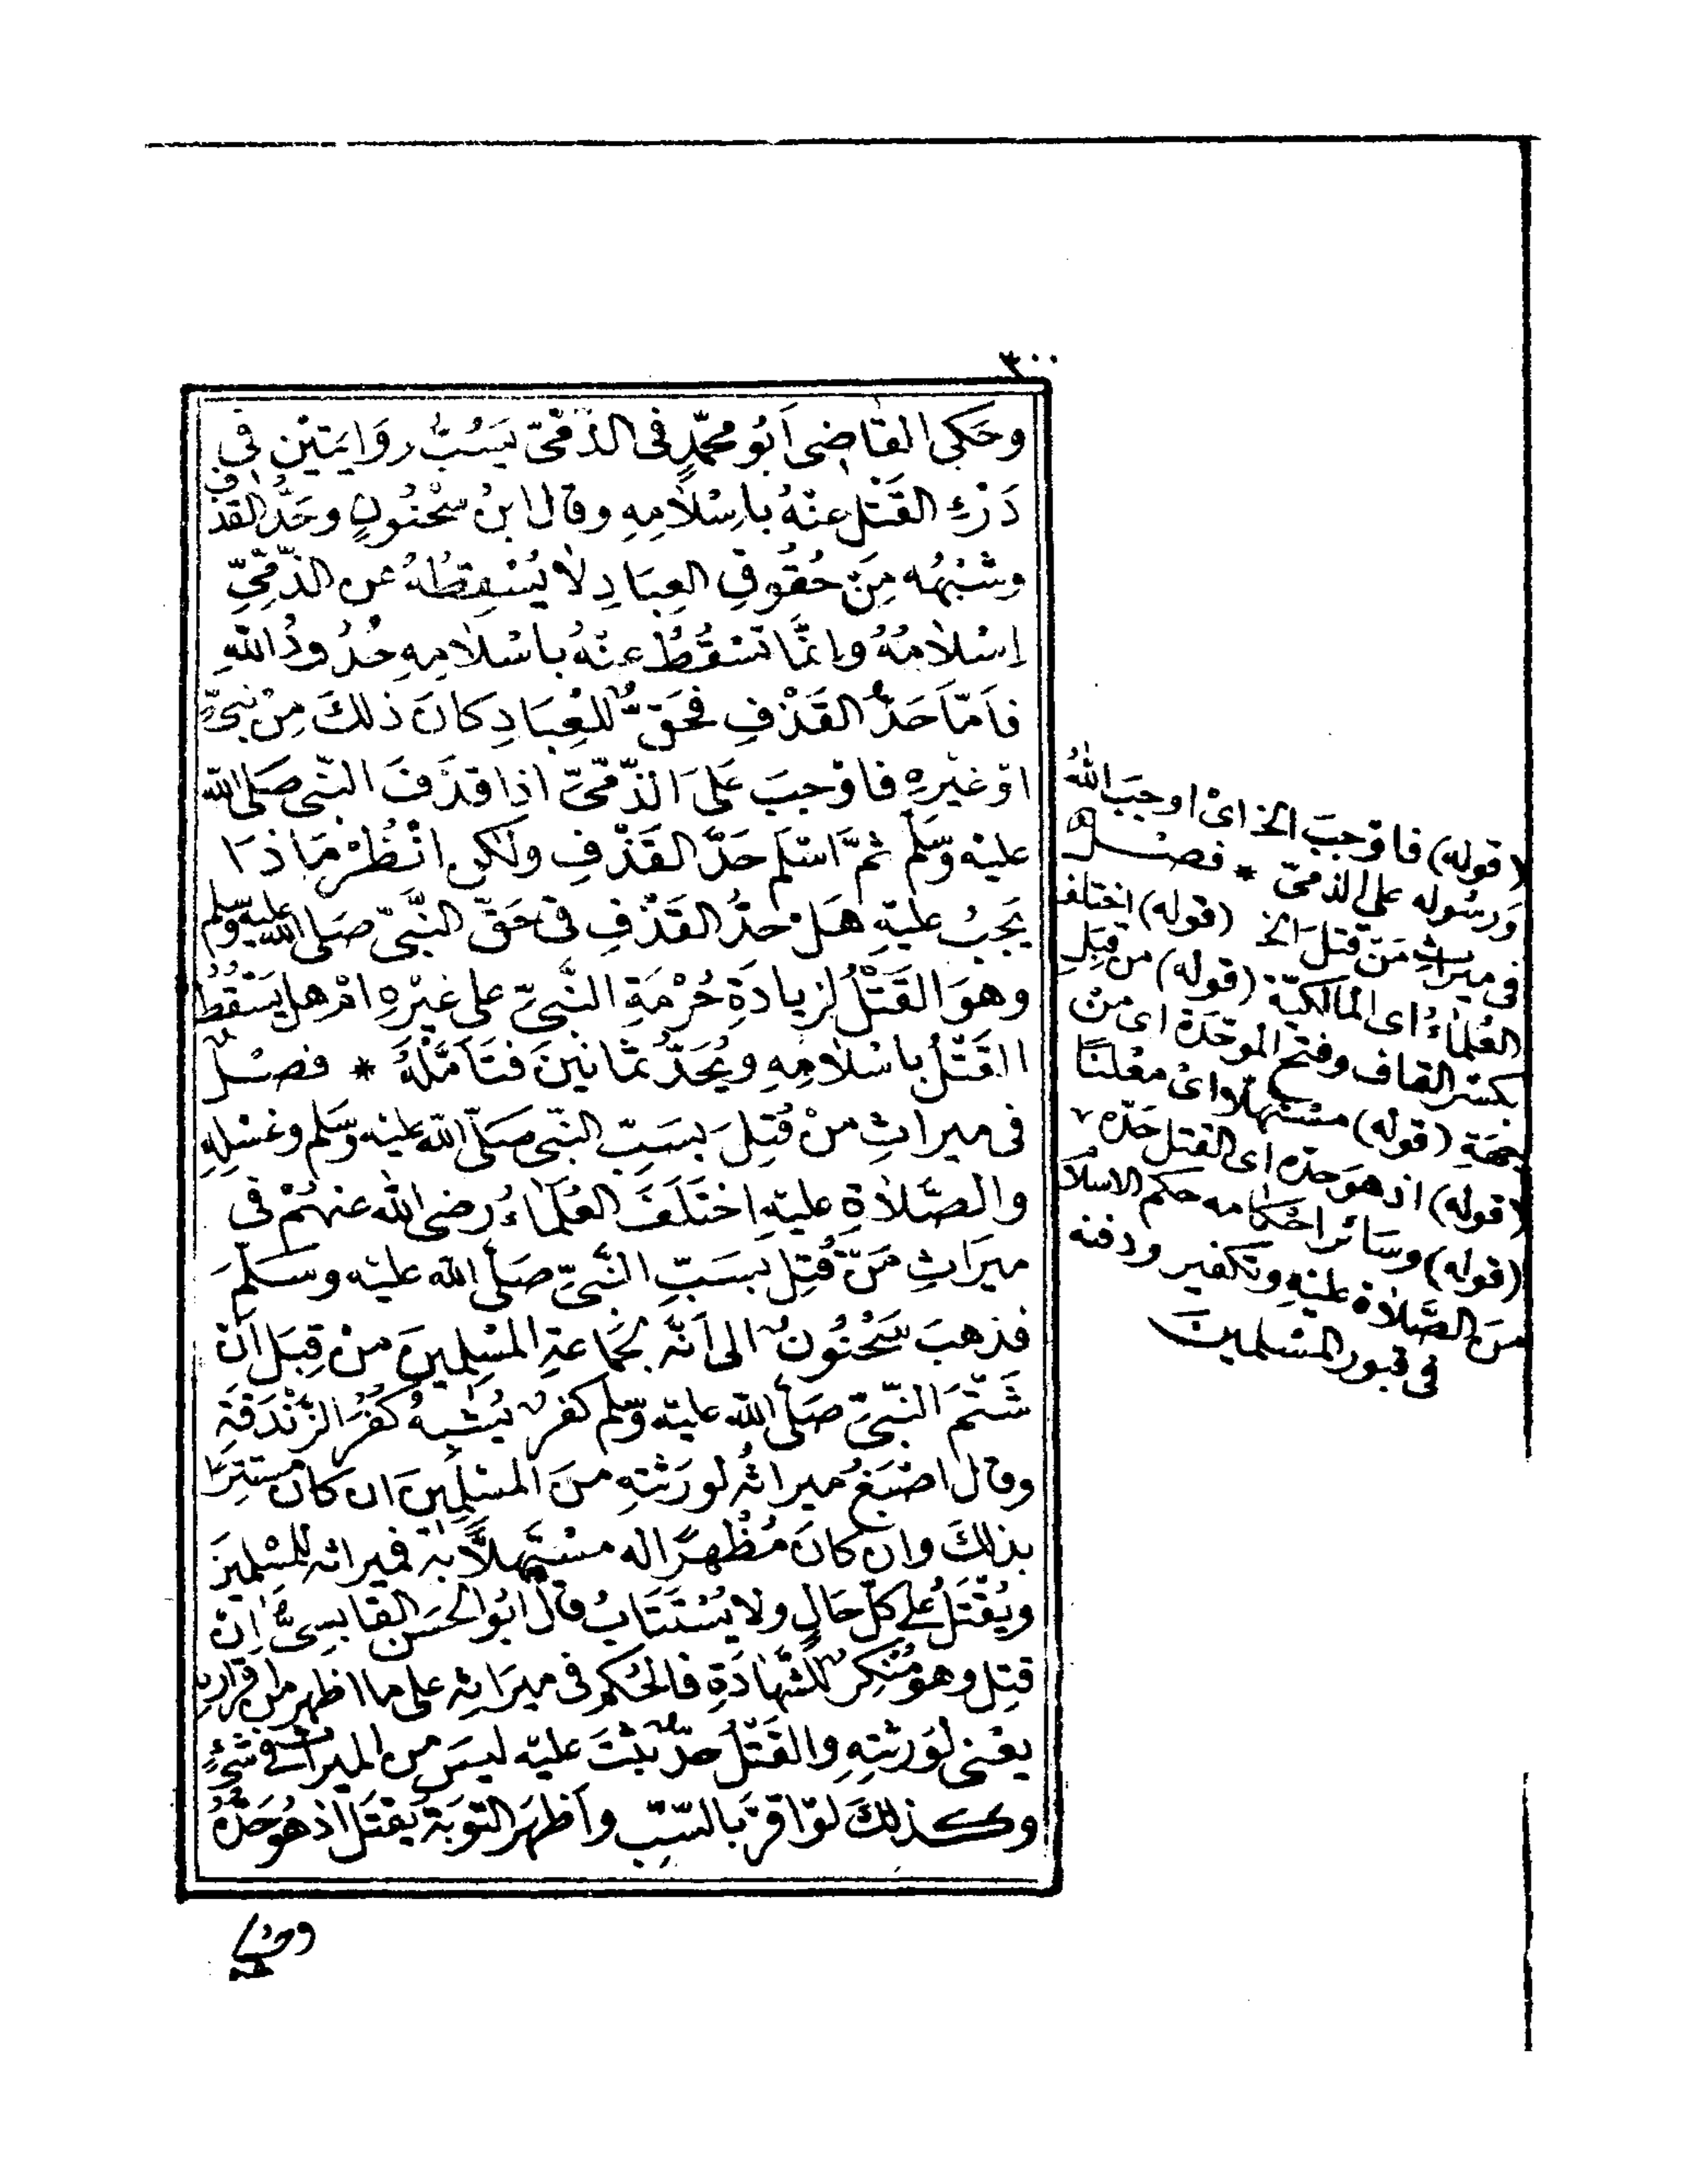 ٣٠٠
وحَكى القاضِى اَبُو محمّدٍ فى الذّمّىّ يَسُبُّ روَايَتَيْنِ فى
دَرْءِ القَتْلِ عنْهُ باِسْلَامِهِ وقال ابنُ سُحْنُونٍ وحَدُّ القَذْفِ
وشبْهُه مِنْ حُقُوقِ العِبَادِ لَا يُسْقِطُهُ عن الذّمّىِّ
اِسْلَامُهُ واِنّمَّا تَسْقُطُ عنْهُ باسْلَامِهِ حُدُودُ اللّهِ
فاَمّاَ حَدُّ القَذْفِ فحَقٌّ للْعِبَادِ كانَ ذلكَ مِنْ نبىٍّ
اوْ غيْرِهِ فاوْجبَ عَلَى الذّمّىّ اذا قذَفَ النّبى صَلى اللّه
عليْه وَسَلّم ثمَّ اسْلَم حَدّ القَذْفِ ولكنِ انْظُرْ مَاذَا
يَجِبُ عليْهِ هَلْ حدُّ القَذْفِ فى حَقّ النَّبىّ صَلى اللّه عليه وَسلم
وهوَ القَتْلُ لزِيادَةِ حُرْمَةِ النَّبىّ على غيْرِهِ امْ هل يَسْقُطُ
القَتْلُ باسْلَامِهِ ويُحَدُّ ثمَانِينَ فتَأَمّلْهُ * فصْـلٌ
فى ميراثِ منْ قُتِلَ بسَبّ النّبى صَلّى اللّه عليْه وَسَلم وغسْلِهِ
والصَّلَاةِ عليْهِ اخْتَلَفَ العُلَمَاءُ رَضى اللّه عنهُمْ فى
ميرَاثِ مَنْ قُتِل بسَبّ النَّبىّ صَلّى اللّه عليْه وسَلّمَ
فذهبَ سُحْنُونٌ الى اَنّهُ لجَمَاعةِ المسْلِمينَ منْ قِبَلِ اَنّ
شَتْمَ النّبىّ صَلّى اللّه عليْه وَسلم كفرٌ يُشْبِهُ كُفْرَ الزَّنْدَقةِ
وقال اصْبَغُ ميراثُهُ لورَثتهِ منَ المسْلِمِينَ ان كانَ مستتِرًا
بذلكَ وان كانَ مُظْهِرًا له مسْتَهِلًّا بهِ فميراثه للمسْلمينَ
ويُقْتَلُ على كلّ حَالٍ ولا يُسْتَتَابُ قالَ ابُو الحَسَنِ القابسِىُّ اِنْ
قتِل وهوَ مُنْكِرٌ للشّهَادَةِ فالحُكم فى ميرَاثِه على ما اظهر من اقرارهِ
يعْنى لوَرَثتِهِ والقَتْلُ حَدٌّ ثبَتَ عليْه ليسَ من الميراث فى شىْءٍ
وكـذلكَ لوْ اقرّ بالسّبّ واَظهَر التّوبَة يُقتَل اذ هُوَ حَدُّهُ
(قوله) فاوْجبَ الخ اىْ اوجَبَ اللّهُ
وَرسُوله على الذمىّ * فصْـل
فى ميراثِ مَنْ قتلَ الخ (قوله) اختلفَ
العُلمَاءُ اى المالكيّة (قوله) من قبَلِ
بكسْر القاف وفتح الموحّدة اى منْ
جهَةِ (قوله) مسْتهلّا اىْ معْلنًا
(قوله) اذ هوَ حدّه اى القتل حَدّه
(قوله) وسَائر احْكامه حكم الاسْلامِ
منَ الصَّلَاة عليْهِ وتكفير ودفنه
فى قبور المسْلمينَ